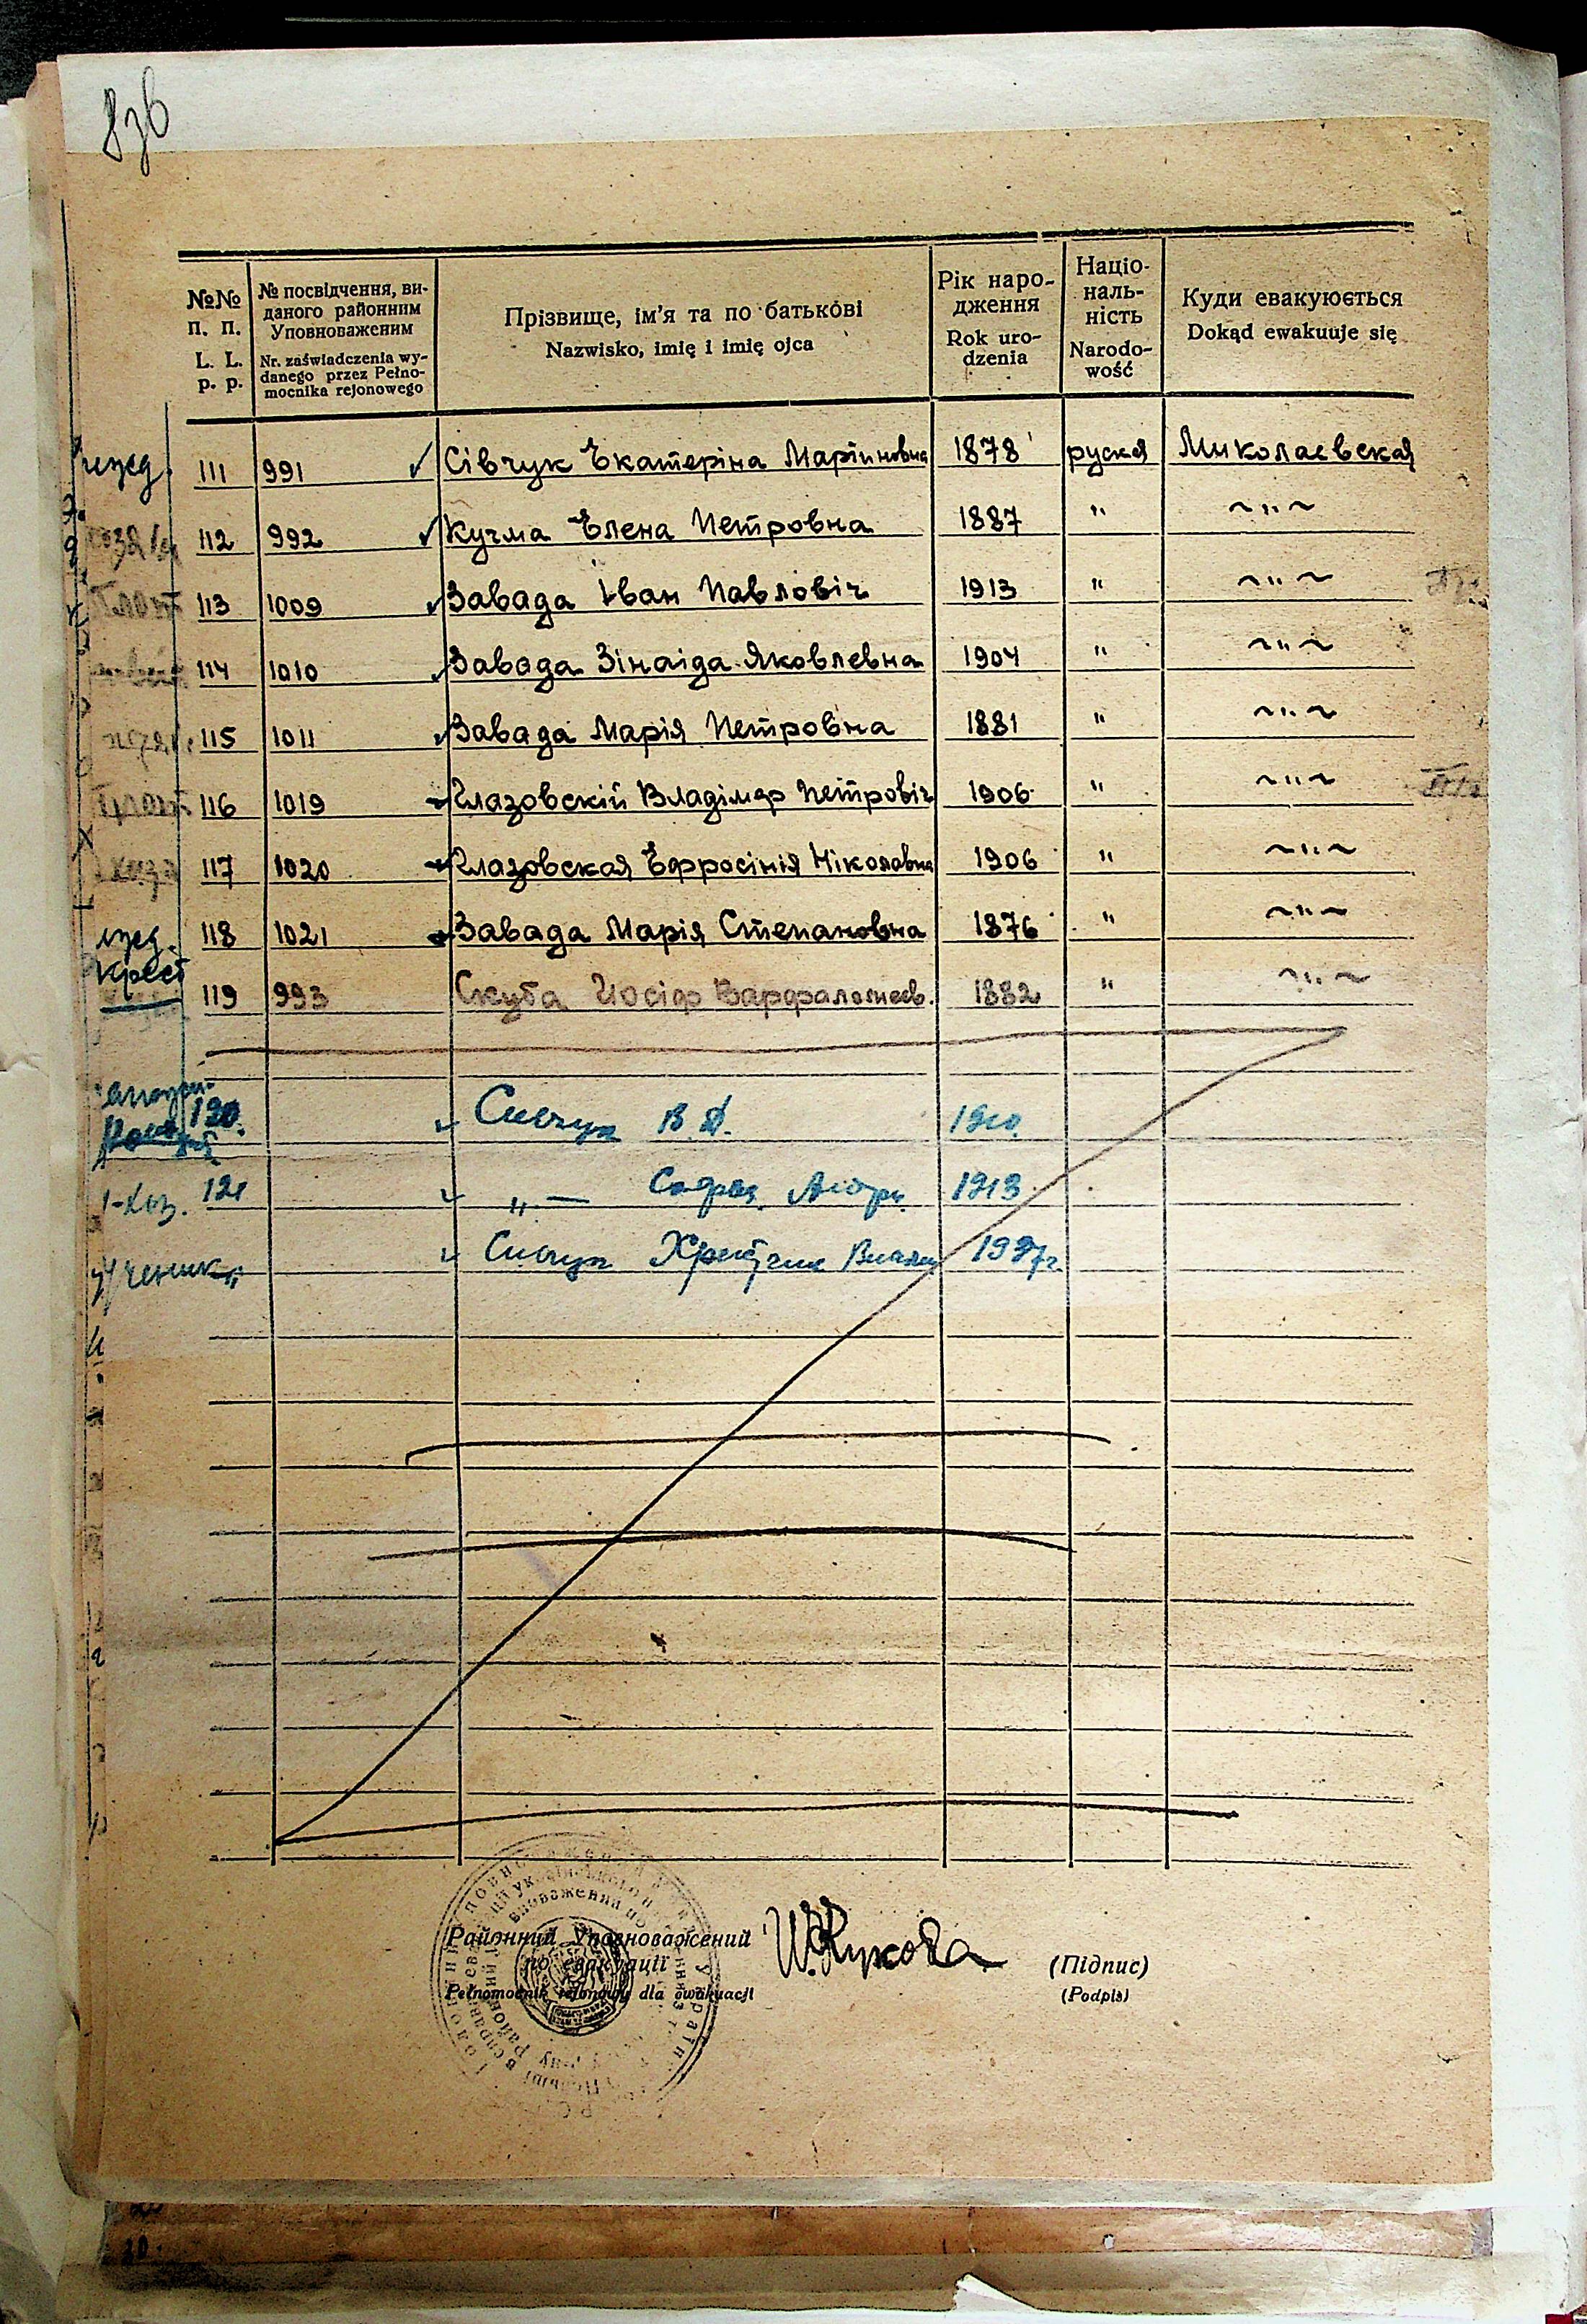 836
№№ п. п. L. L. p. p.
№ посвідчення, виданого районним Уповноваженим Nr. zaświadczenia wydanego przez Pełnomocnika rejonowego
Прізвище, ім’я та по батькові Nazwisko, imię i imię ojca
Рік народження Rok urodzenia
Національність Narodowość
Куди евакуюється Dokąd ewakuuje się
111 991 ✓ Сівчук Екатеріна Мартиновна 1878 руская Миколаевская
112 992 ✓ Кучма Елена Петровна 1887 " ~"~
113 1009 ✓ Завада Іван Павловіч 1913 " ~"~
114 1010 ✓ Завада Зінаіда Яковлевна 1904 " ~"~
115 1011 ✓ Завада Марія Петровна 1881 " ~"~
116 1019 Глазовскій Владімер Петровіч 1906 " ~"~
117 1020 Глазовская Ефросінія Ніколавна 1906 " ~"~
118 1021 Завада Марія Степановна 1876 " ~"~
крест
119 993 Скуба Иосіф Варфаломеев. 1882 " ~"~
120. ✓ Сивчук В. Д. 1910
1-хоз. 121 ✓ " — 1913
✓ Сивчук 1937г.
Районний Уповноважений
по евакуації
Pełnomocnik rejonowy dla ewakuacji
(Підпис)
(Podpis)